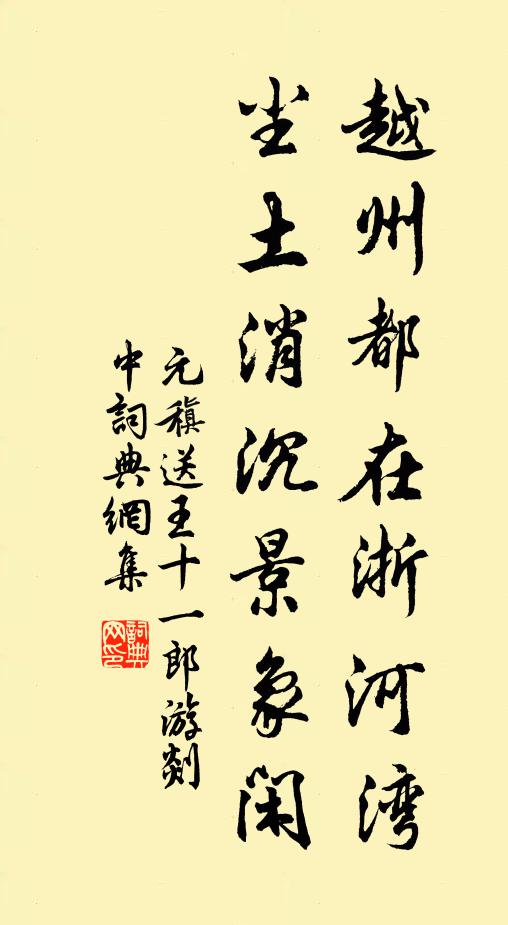 越州都在浙河湾
尘土消沉景象闲
元稹送王十一郎游剡
中詞典網集
詞典网印